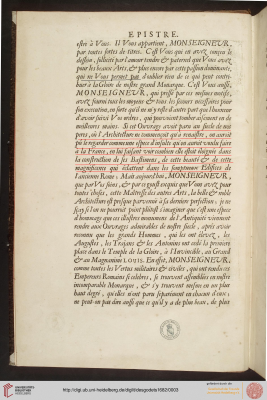 EPISTRE.
estre à Vous. Il Vous appartient, MONSEIGNEUR,
par toutes sortes de titres. C'est Vous qui en avez conçeu le
dessein, sollicité par l'amour tendre & paternel que Vous avez
pour les beaux Arts, & plus encore par cette passion dominante,
qui ne Vous permet pas d'oublier rien de ce qui peut contri-
buer à la Gloire de nostre grand Monarque. C'est Vous aussi,
MONSEIGNEUR, qui pressé par ces mesmes motifs,
avez fourni tous les moyens & tous les secours necessaires pour
son execution, en sorte qu'il ne m'y reste d'autre part que l'honneur
d'avoir suivi Vos ordres, qui pouvoient tomber aisement en de
meilleures mains. Si cet Ouvrage avoit paru au siecle de nos
peres, où l'Architecture ne commençoit qu'à renaistre, on auroit
pû le regarder comme une espece d'insulte qu'on auroit voulu faire
à la France, en luy faisant voir combien elle estoit éloignée dans
la construction de ses Bastimens, de cette beauté & de cette
magnificence qui éclattent dans les somptueux Edifices de
l'ancienne Rome: Mais aujourd'huy, MONSEIGNEUR,
que par Vos soins, & par ce goust exquis que Vous avez pour
toutes choses, cette Maistresse des autres Arts, la belle & noble
Architecture est presque parvenuë à sa derniere perfection; je ne
sçay si l'on ne pourroit point plûtost s'imaginer que c'est une espece
d'hommage que ces illustres monumens de l'Antiquité viennent
rendre aux Ouvrages admirables de nostre siecle, aprés avoir
reconnu que les grands Hommes, qui les ont élevez, les
Augustes, les Trajans & les Antonins ont cedé la premiere
place dans le Temple de la Gloire, à l'Invincible, au Grand
& au Magnanime LOUIS. En effet, MONSEIGNEUR,
comme toutes les Vertus militaires & civiles, qui ont rendu ces
Empereurs Romains si celebres, se trouvent assemblées en nostre
incomparable Monarque, & s'y trouvent mesme en un plus
haut degré, qu'elles n'ont paru séparément en chacun d'eux;
ne peut-on pas dire aussi que ce qu'il y a de plus beau, de plus
http://digi.ub.uni-heidelberg.de/diglit/desgodets1682/0003